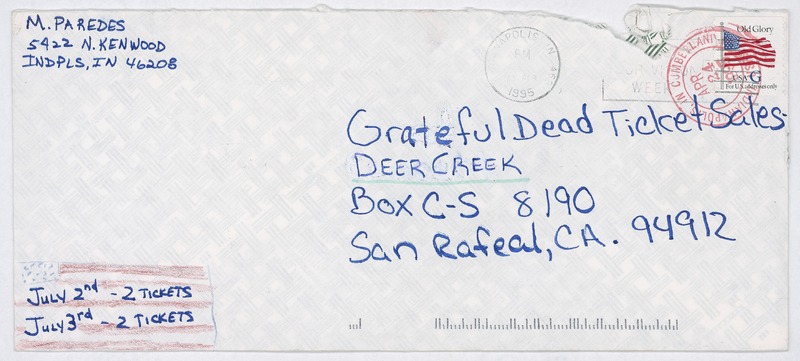 M. PAREDES
5422 N. KENWOOD
INDPLS, IN 46208
1995
WEEK
CUMBERLAND
APR
Old Glory
USA G
For U.S. addresses only
Grateful Dead Ticket Sales-
DEER CREEK
Box C-S 8190
San Rafeal, CA. 94912
July 2nd - 2 TICKETS
July 3rd - 2 TICKETS